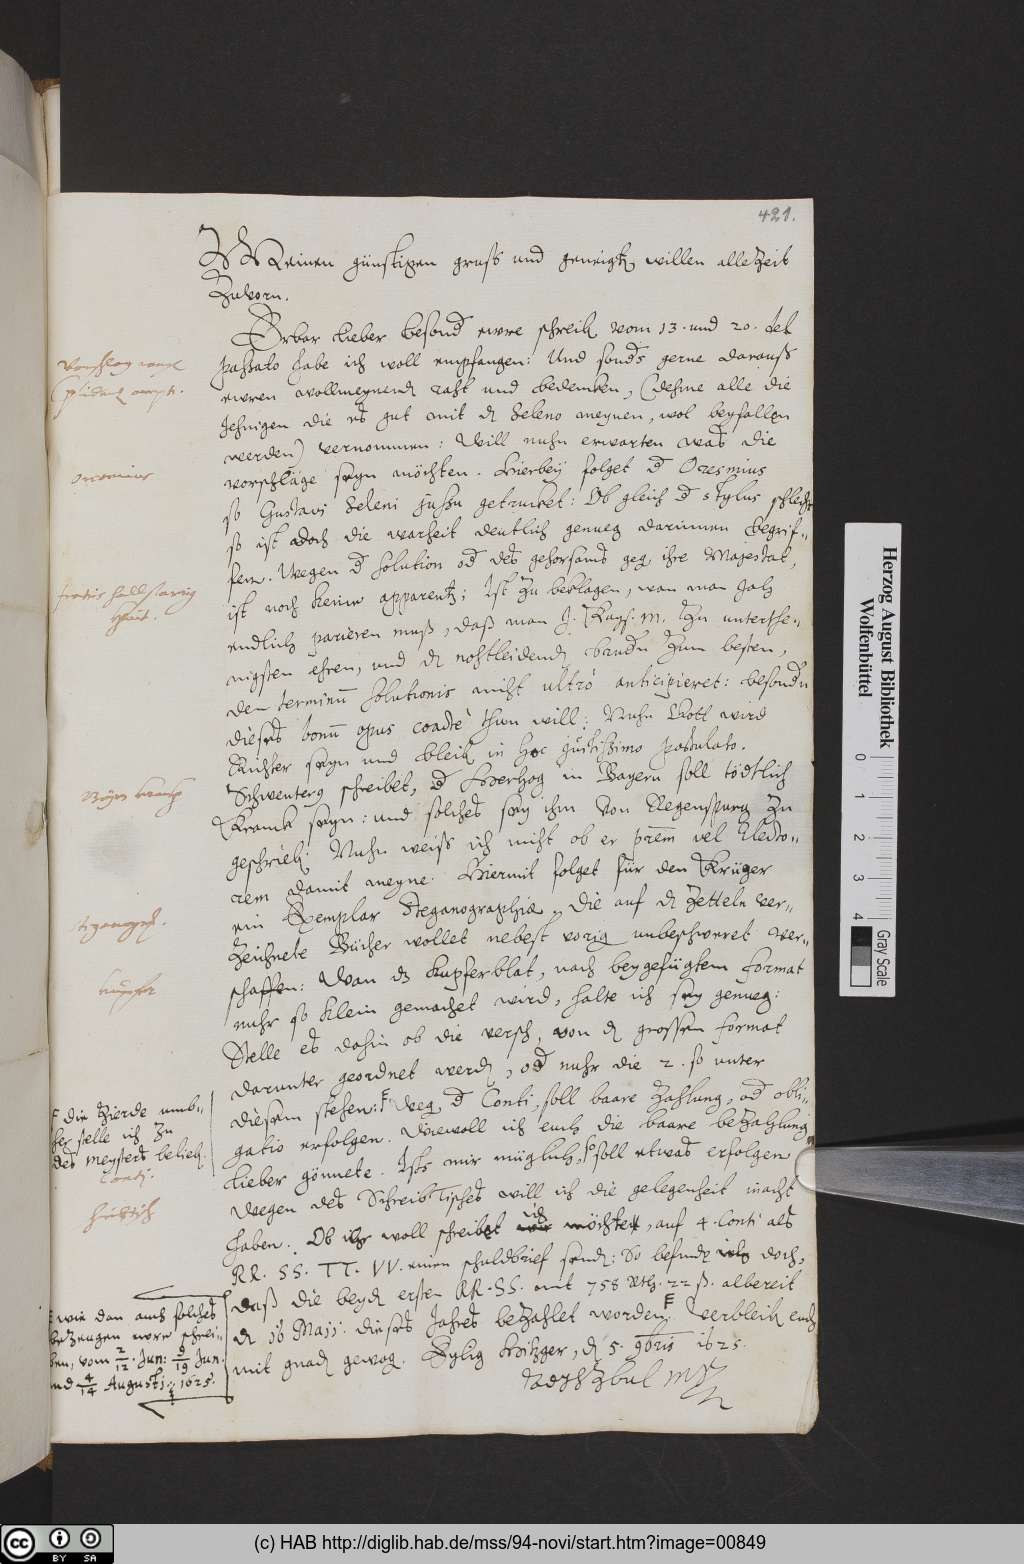 421.
Meinen günstigen gruß und geneigtē willen alle Zeit
Zuvorn.
Erbar lieber besond ewre schreib vom 13. und 20. des
passato habe ich woll empfangen: Und sonds gerne darauß
ewren wollmeynend raht und bedencken, (deßme alle die
Jehnigen die es gut mit d Seleno meynen, wol beyfallen
werden) vernommen: Will nuhn erwarten was die
vorschläge seyn möchten. Hierbey folget d Oresmius
so Gustavi Seleni jussu getrucket: Ob gleich d stylus schlecht
so ist doch die warheit deutlich genueg darinnen begrif-
fen. Wegen d solution od des gehorsams geg ihre Mayestat,
ist noch keine apparentz; Ist zu beklagen, wan man
endlich parieren muß, daß man J. Kays. M. Zu unterthe-
nigsten ehren, und d nohtleidend Zum besten,
den terminū solutionis nicht ultrò anticipieret: besondn
dieses bonū opus coactè thun will: Nuhn Gott wird
Richter seyn und bleib in hoc justissimo postulato.
Schwenterg schreibet, d Hertzog in Bayern soll tödtlich
Kranck seyn: und solches sey ihm von Regenspurg zu
geschrieb. Nuhn weiß ich nicht ob er vel Electo-
rem damit meyne. Hiermit folget für den Krüger
ein Exemplar Steganographiæ, die auf d Zetteln ver-
Zeichnete Bücher wollet nebest vorig unbeschweret ver-
schaffen: Wan dz Kupferblat, nach beygefügtem format
nuhr so klein gemachet wird, halte ich sey genueg:
Stelle es dahin ob die versch, von d grossen format
darunter geordnet werd, od nuhr die 2. so unter
diesem stehen: Weg d Conti, soll baare Zahlung, od obli-
gatio erfolgen. Wiewoll ich euch die baare beZahlung
lieber gönnete. Ists mir müglich, soll etwas erfolgen
Wegen des SchreibTisches will ich die gelegenheit in acht
haben. Ob woll ich möchte, auf 4. Conti als
RR. SS. TT. VV. einen schuldbrief send: So befinde doch,
daß die beyd ersten RR. SS. mit 758 Rth. 22 ß. albereit
d 16 Maij. dieses Jahres beZahlet worden. Verbleib euch
mit gnad gewog. Eylig Hitzger, d 5. 9bris 1625.
Vorschlag wegē
Oresmius
Bäyern kranckh
Steganograph.
kupfer
die Zierde umb-
her stelle ich zu
des meysters belieb.
Conti.
wie dan auch solches
beZeugen ewre schrei-
ben, vom 2/12. Jun: 9/19 Jun.
und 4/14 Augusti: 1625.
Herzog August Bibliothek
Wolfenbüttel
0 1 2 3 4
Gray Scale
cc BY SA
(c) HAB http://diglib.hab.de/mss/94-novi/start.htm?image=00849